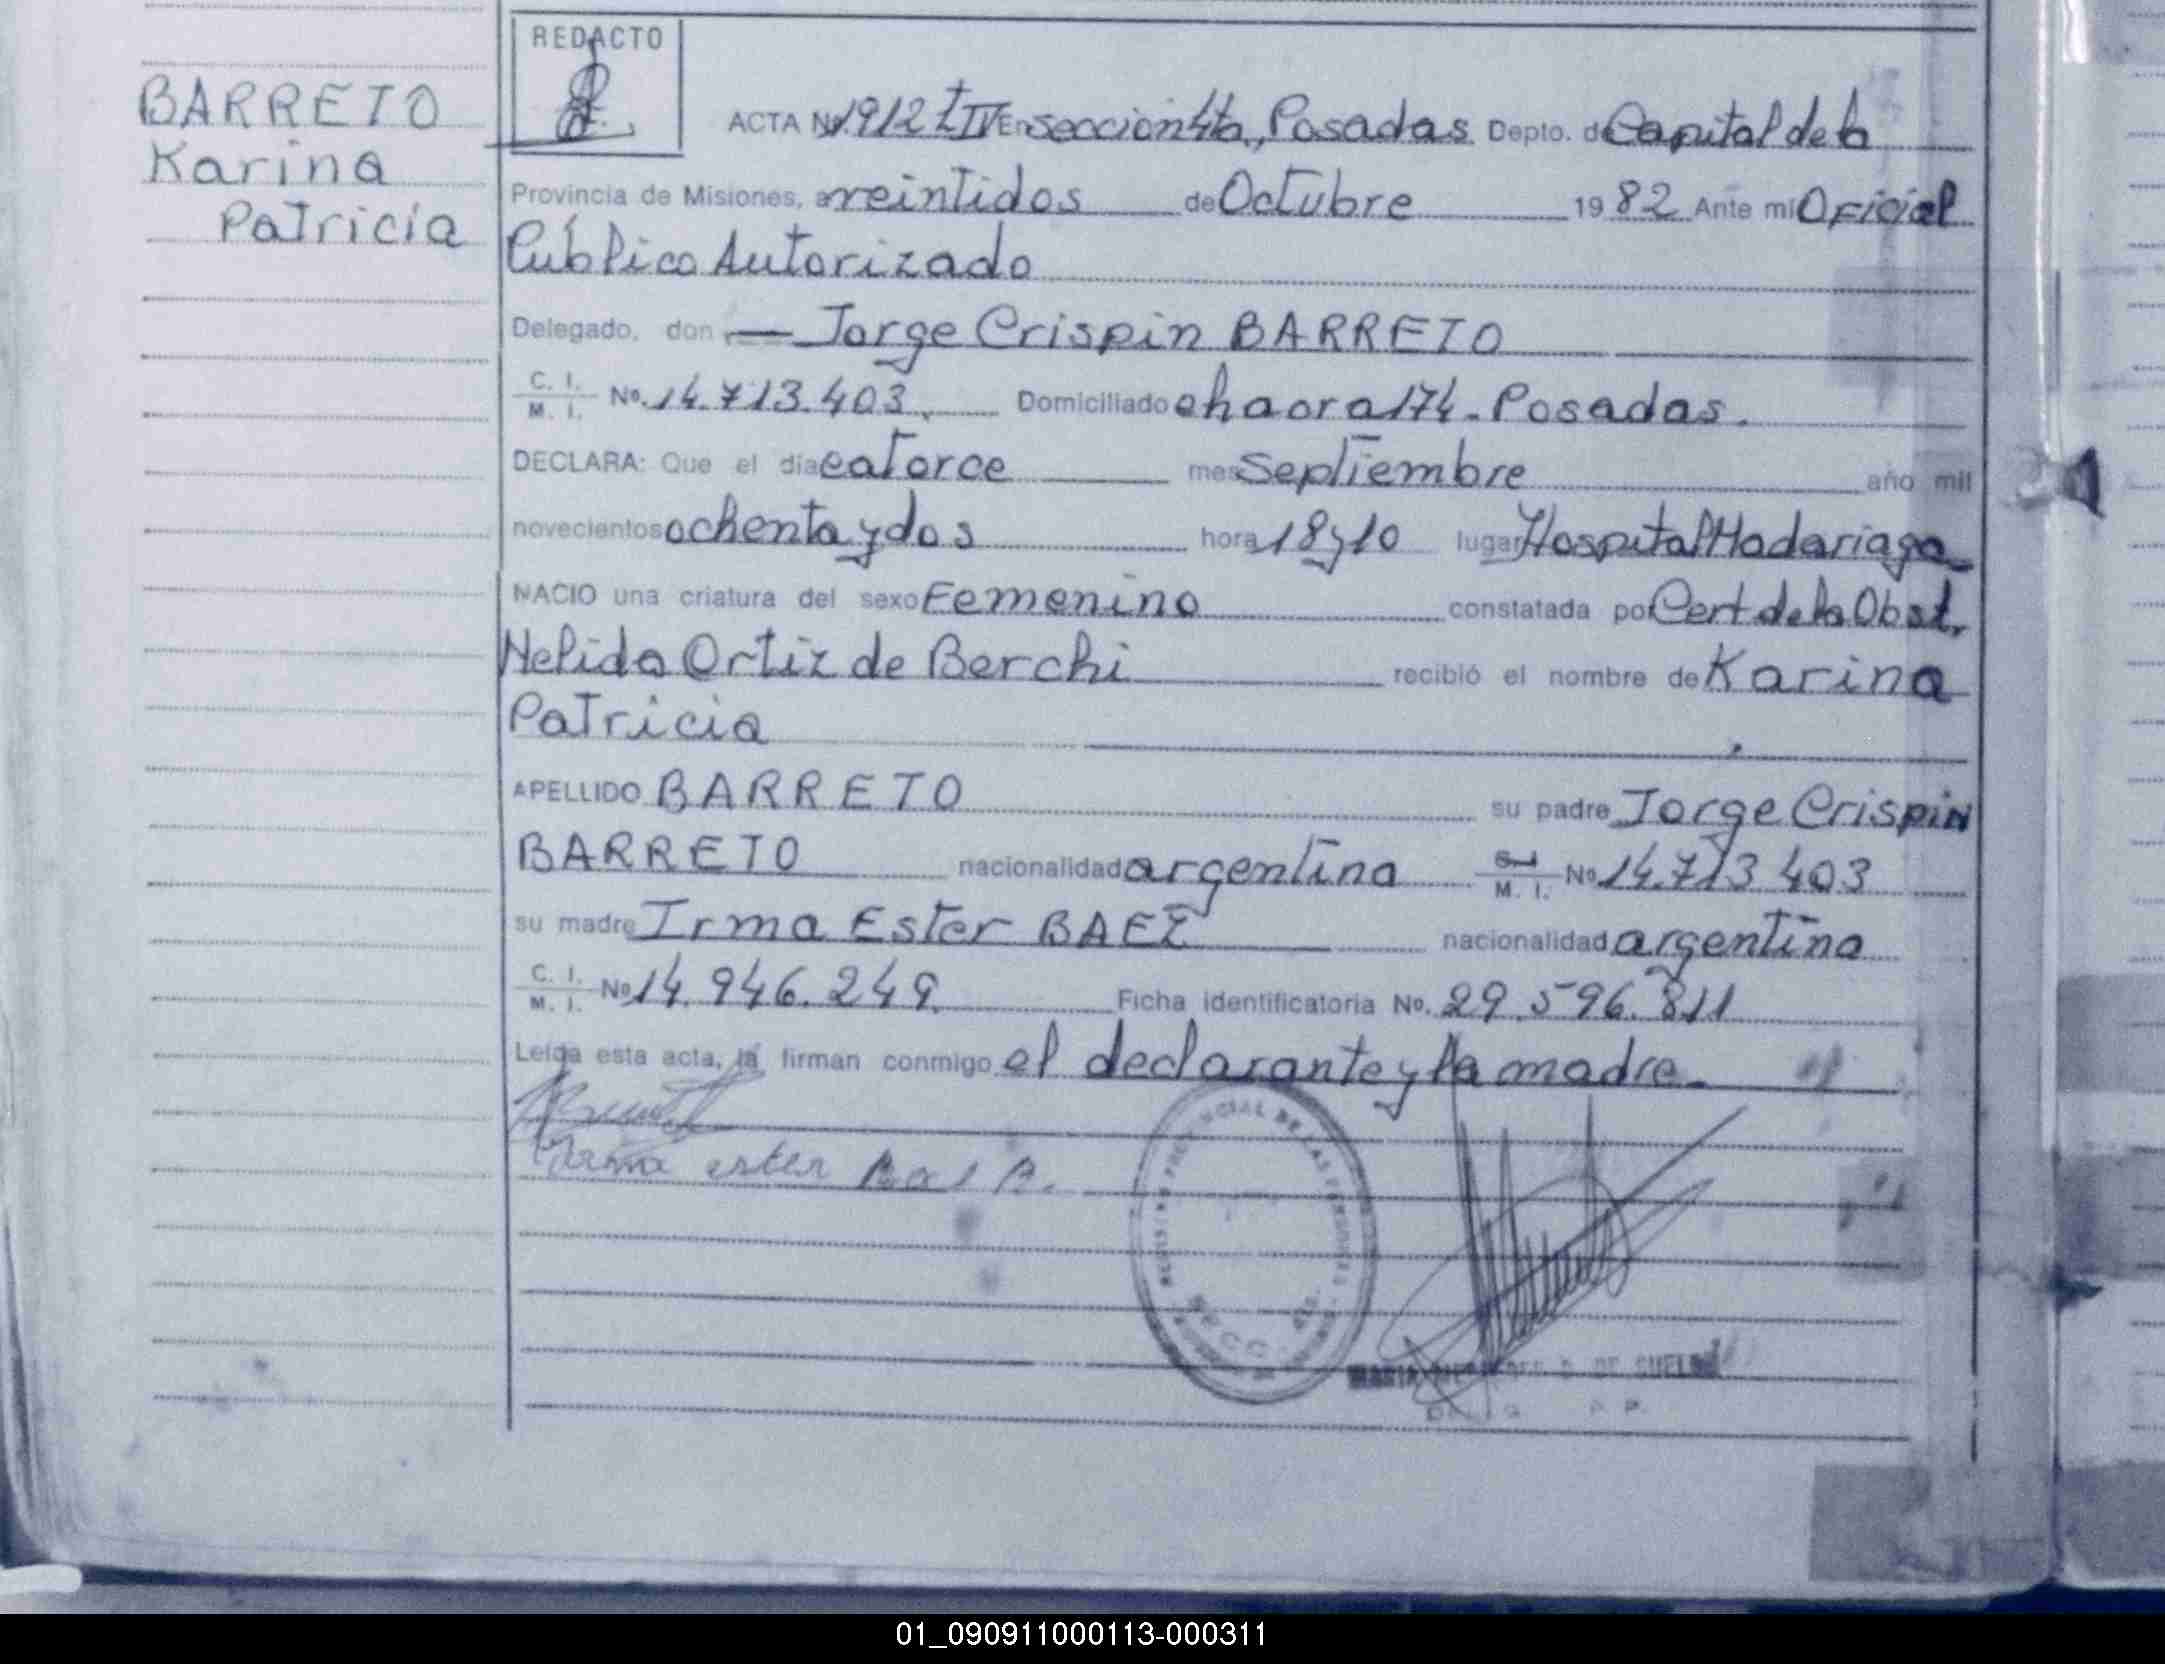 REDACTO
BARRETO
Karina
Patricia
ACTA Nº 1912 t IV En seccion 4ta., Posadas Depto. de Capital de la
Provincia de Misiones, a veintidos de Octubre 19 82 Ante mi Oficial
Público Autorizado
Delegado, don — Jorge Crispin BARRETO
C. I. / M. I. Nº. 14.713.403. Domiciliado chacra 174. Posadas.
DECLARA: Que el día catorce mes Septiembre año mil
novecientos ochenta y dos hora 18 y 10 lugar Hospital Madariaga
NACIO una criatura del sexo Femenino constatada por Cert de la Obst.
Nelida Ortiz de Berchi recibió el nombre de Karina
Patricia
APELLIDO BARRETO su padre Jorge Crispin
BARRETO nacionalidad argentina M. I. Nº 14.713 403
su madre Irma Ester BAEZ nacionalidad argentina
C. I. / M. I. Nº 14.946.249. Ficha identificatoria Nº. 29.596.811
Leída esta acta, la firman conmigo el declarante y la madre.
Irma ester
DE LAS PERSONAS
SECC. 4ta.
MARIA DE CUELLO
01_090911000113-000311